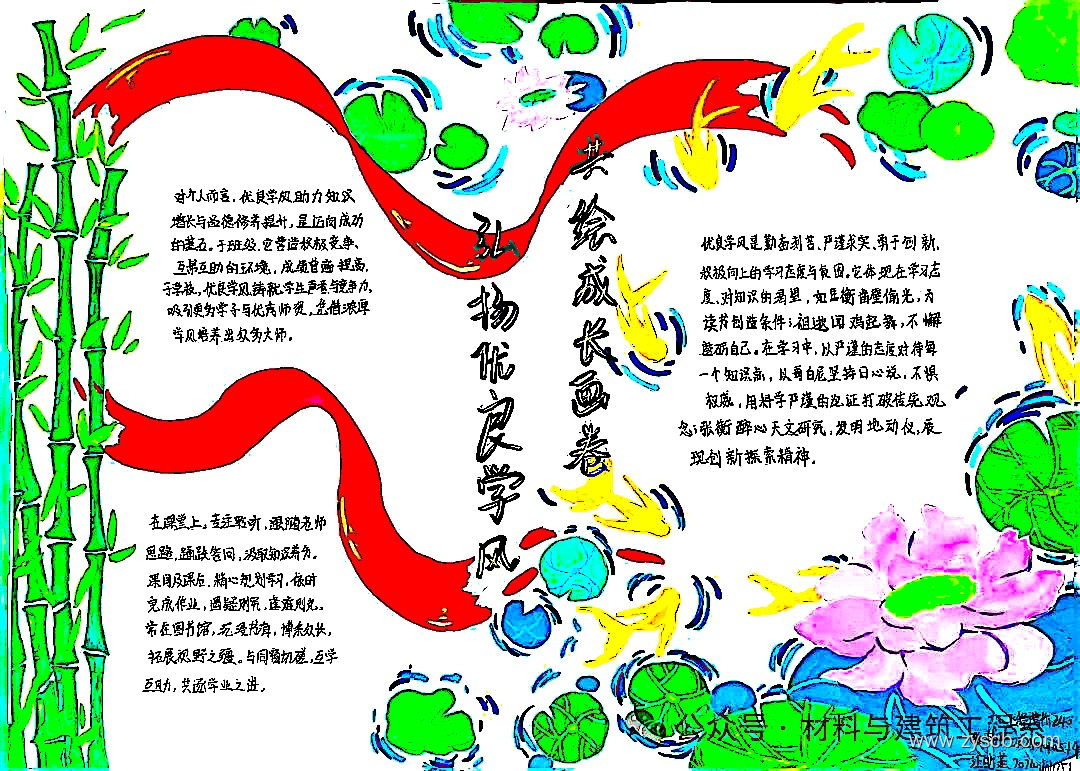 弘扬优良学风
共绘成长画卷
对个人而言，优良学风助力知识
增长与品德修养提升，是迈向成功
的基石。于班级，它营造积极竞争、
互帮互助的环境，成绩普遍提高。
于学校，优良学风铸就学生声誉与竞争力，
吸引更多学子与优秀师资，凭借深厚
学风培养出众多大师。
在课堂上，专注聆听，跟随老师
思路，踊跃答问，汲取知识养分。
课间及课后，精心规划学习，按时
完成作业，遇疑则究，逢难则克。
常在图书馆，
博采众长，
拓展视野之疆。与同窗切磋，互学
互助，共面学业之进。
优良学风是勤奋刻苦、严谨求实、勇于创新、
积极向上的学习态度与氛围。它体现在学习态
度、对知识的渴望，如匡衡凿壁偷光，为
读书创造条件；祖逖闻鸡起舞，不懈
磨砺自己。在学习中，以严谨的态度对待每
一个知识点，以哥白尼坚持日心说，不惧
权威，用科学严谨的论证打破传统观
念；张衡醉心天文研究，发明地动仪，展
现创新探索精神。
公众号·材料与建筑工程系
www.zysdb.com